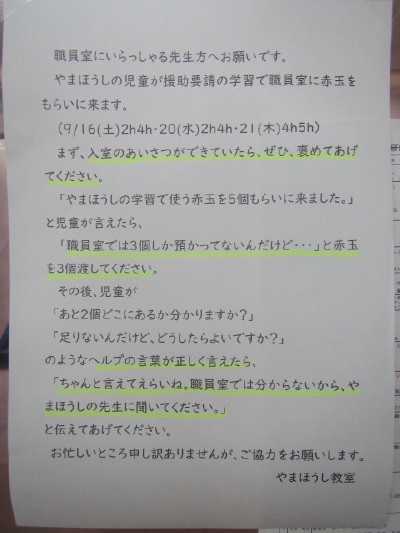 職員室にいらっしゃる先生方へお願いです。
やまほうしの児童が援助要請の学習で職員室に赤玉を
もらいに来ます。
(9/16(土)2h4h・20(水)2h4h・21(木)4h5h)
まず、入室のあいさつができていたら、ぜひ、褒めてあげ
てください。
「やまほうしの学習で使う赤玉を5個もらいに来ました。」
と児童が言えたら、
「職員室では3個しか預かってないんだけど・・・」と赤玉
を3個渡してください。
その後、児童が
「あと2個どこにあるか分かりますか?」
「足りないんだけど、どうしたらよいですか?」
のようなヘルプの言葉が正しく言えたら、
「ちゃんと言えてえらいね。職員室では分からないから、や
まほうしの先生に聞いてください。」
と伝えてあげてください。
お忙しいところ申し訳ありませんが、ご協力をお願いします。
やまほうし教室